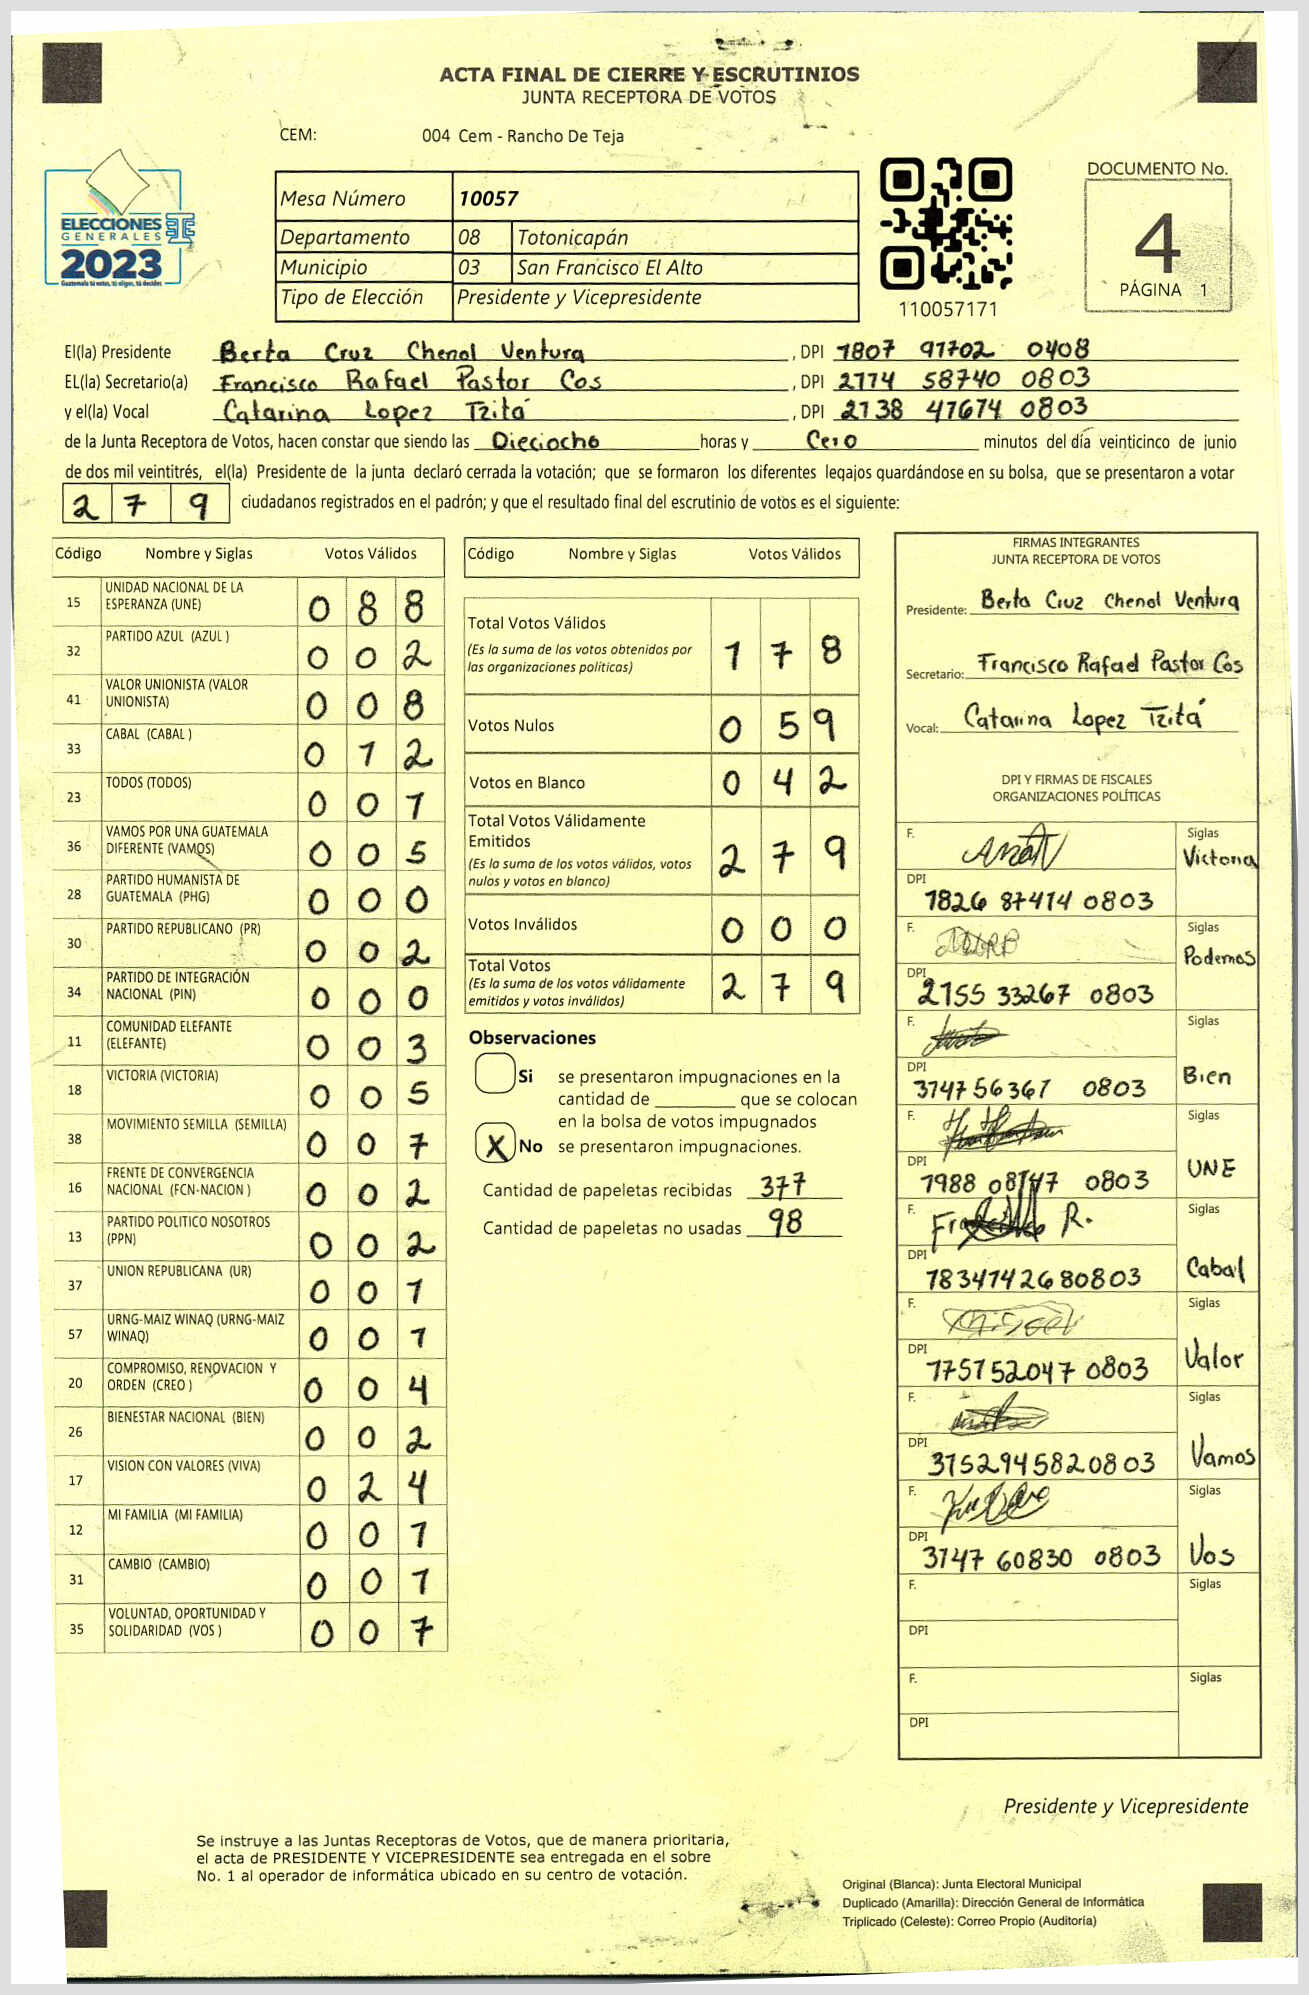 ACTA FINAL DE CIERRE Y ESCRUTINIOS
JUNTA RECEPTORA DE VOTOS
CEM: 004 Cem - Rancho De Teja
ELECCIONES
GENERALES
2023
Guatemala tú votas, tú eliges, tú decides
Mesa Número 10057
Departamento 08 Totonicapán
Municipio 03 San Francisco El Alto
Tipo de Elección Presidente y Vicepresidente
110057171
DOCUMENTO No.
4
PÁGINA 1
El(la) Presidente Berta Cruz Chenol Ventura , DPI 1807 91702 0408
EL(la) Secretario(a) Francisco Rafael Pastor Cos , DPI 2774 58740 0803
y el(la) Vocal Catarina Lopez Tzitá , DPI 2738 47674 0803
de la Junta Receptora de Votos, hacen constar que siendo las Dieciocho horas y Cero minutos del día veinticinco de junio
de dos mil veintitrés, el(la) Presidente de la junta declaró cerrada la votación; que se formaron los diferentes legajos quardándose en su bolsa, que se presentaron a votar
279 ciudadanos registrados en el padrón; y que el resultado final del escrutinio de votos es el siguiente:
Código Nombre y Siglas Votos Válidos
15 UNIDAD NACIONAL DE LA ESPERANZA (UNE) 088
32 PARTIDO AZUL (AZUL ) 002
41 VALOR UNIONISTA (VALOR UNIONISTA) 008
33 CABAL (CABAL ) 012
23 TODOS (TODOS) 001
36 VAMOS POR UNA GUATEMALA DIFERENTE (VAMOS) 005
28 PARTIDO HUMANISTA DE GUATEMALA (PHG) 000
30 PARTIDO REPUBLICANO (PR) 002
34 PARTIDO DE INTEGRACIÓN NACIONAL (PIN) 000
11 COMUNIDAD ELEFANTE (ELEFANTE) 003
18 VICTORIA (VICTORIA) 005
38 MOVIMIENTO SEMILLA (SEMILLA) 007
16 FRENTE DE CONVERGENCIA NACIONAL (FCN-NACION ) 002
13 PARTIDO POLITICO NOSOTROS (PPN) 002
37 UNION REPUBLICANA (UR) 001
57 URNG-MAIZ WINAQ (URNG-MAIZ WINAQ) 001
20 COMPROMISO, RENOVACION Y ORDEN (CREO ) 004
26 BIENESTAR NACIONAL (BIEN) 002
17 VISION CON VALORES (VIVA) 024
12 MI FAMILIA (MI FAMILIA) 001
31 CAMBIO (CAMBIO) 001
35 VOLUNTAD, OPORTUNIDAD Y SOLIDARIDAD (VOS ) 007
Código Nombre y Siglas Votos Válidos
Total Votos Válidos 178
(Es la suma de los votos obtenidos por
las organizaciones políticas)
Votos Nulos 059
Votos en Blanco 042
Total Votos Válidamente
Emitidos 279
(Es la suma de los votos válidos, votos
nulos y votos en blanco)
Votos Inválidos 000
Total Votos 279
(Es la suma de los votos válidamente
emitidos y votos inválidos)
Observaciones
Si se presentaron impugnaciones en la
cantidad de ________ que se colocan
en la bolsa de votos impugnados
X No se presentaron impugnaciones.
Cantidad de papeletas recibidas 377
Cantidad de papeletas no usadas 98
FIRMAS INTEGRANTES
JUNTA RECEPTORA DE VOTOS
Presidente: Berta Cruz Chenol Ventura
Secretario: Francisco Rafael Pastor Cos
Vocal: Catarina Lopez Tzitá
DPI Y FIRMAS DE FISCALES
ORGANIZACIONES POLÍTICAS
F. Siglas Victoria
DPI 1826 87414 0803
F. Siglas Podemos
DPI 2155 33267 0803
F. Siglas Bien
DPI 3147 56367 0803
F. Siglas UNE
DPI 1988 08747 0803
F. R. Siglas Cabal
DPI 1834742680803
F. Siglas Valor
DPI 1757520470803
F. Siglas Vamos
DPI 3152945820803
F. Siglas Vos
DPI 3147 60830 0803
F. Siglas
DPI
F. Siglas
DPI
Presidente y Vicepresidente
Se instruye a las Juntas Receptoras de Votos, que de manera prioritaria,
el acta de PRESIDENTE Y VICEPRESIDENTE sea entregada en el sobre
No. 1 al operador de informática ubicado en su centro de votación.
Original (Blanca): Junta Electoral Municipal
Duplicado (Amarilla): Dirección General de Informática
Triplicado (Celeste): Correo Propio (Auditoría)